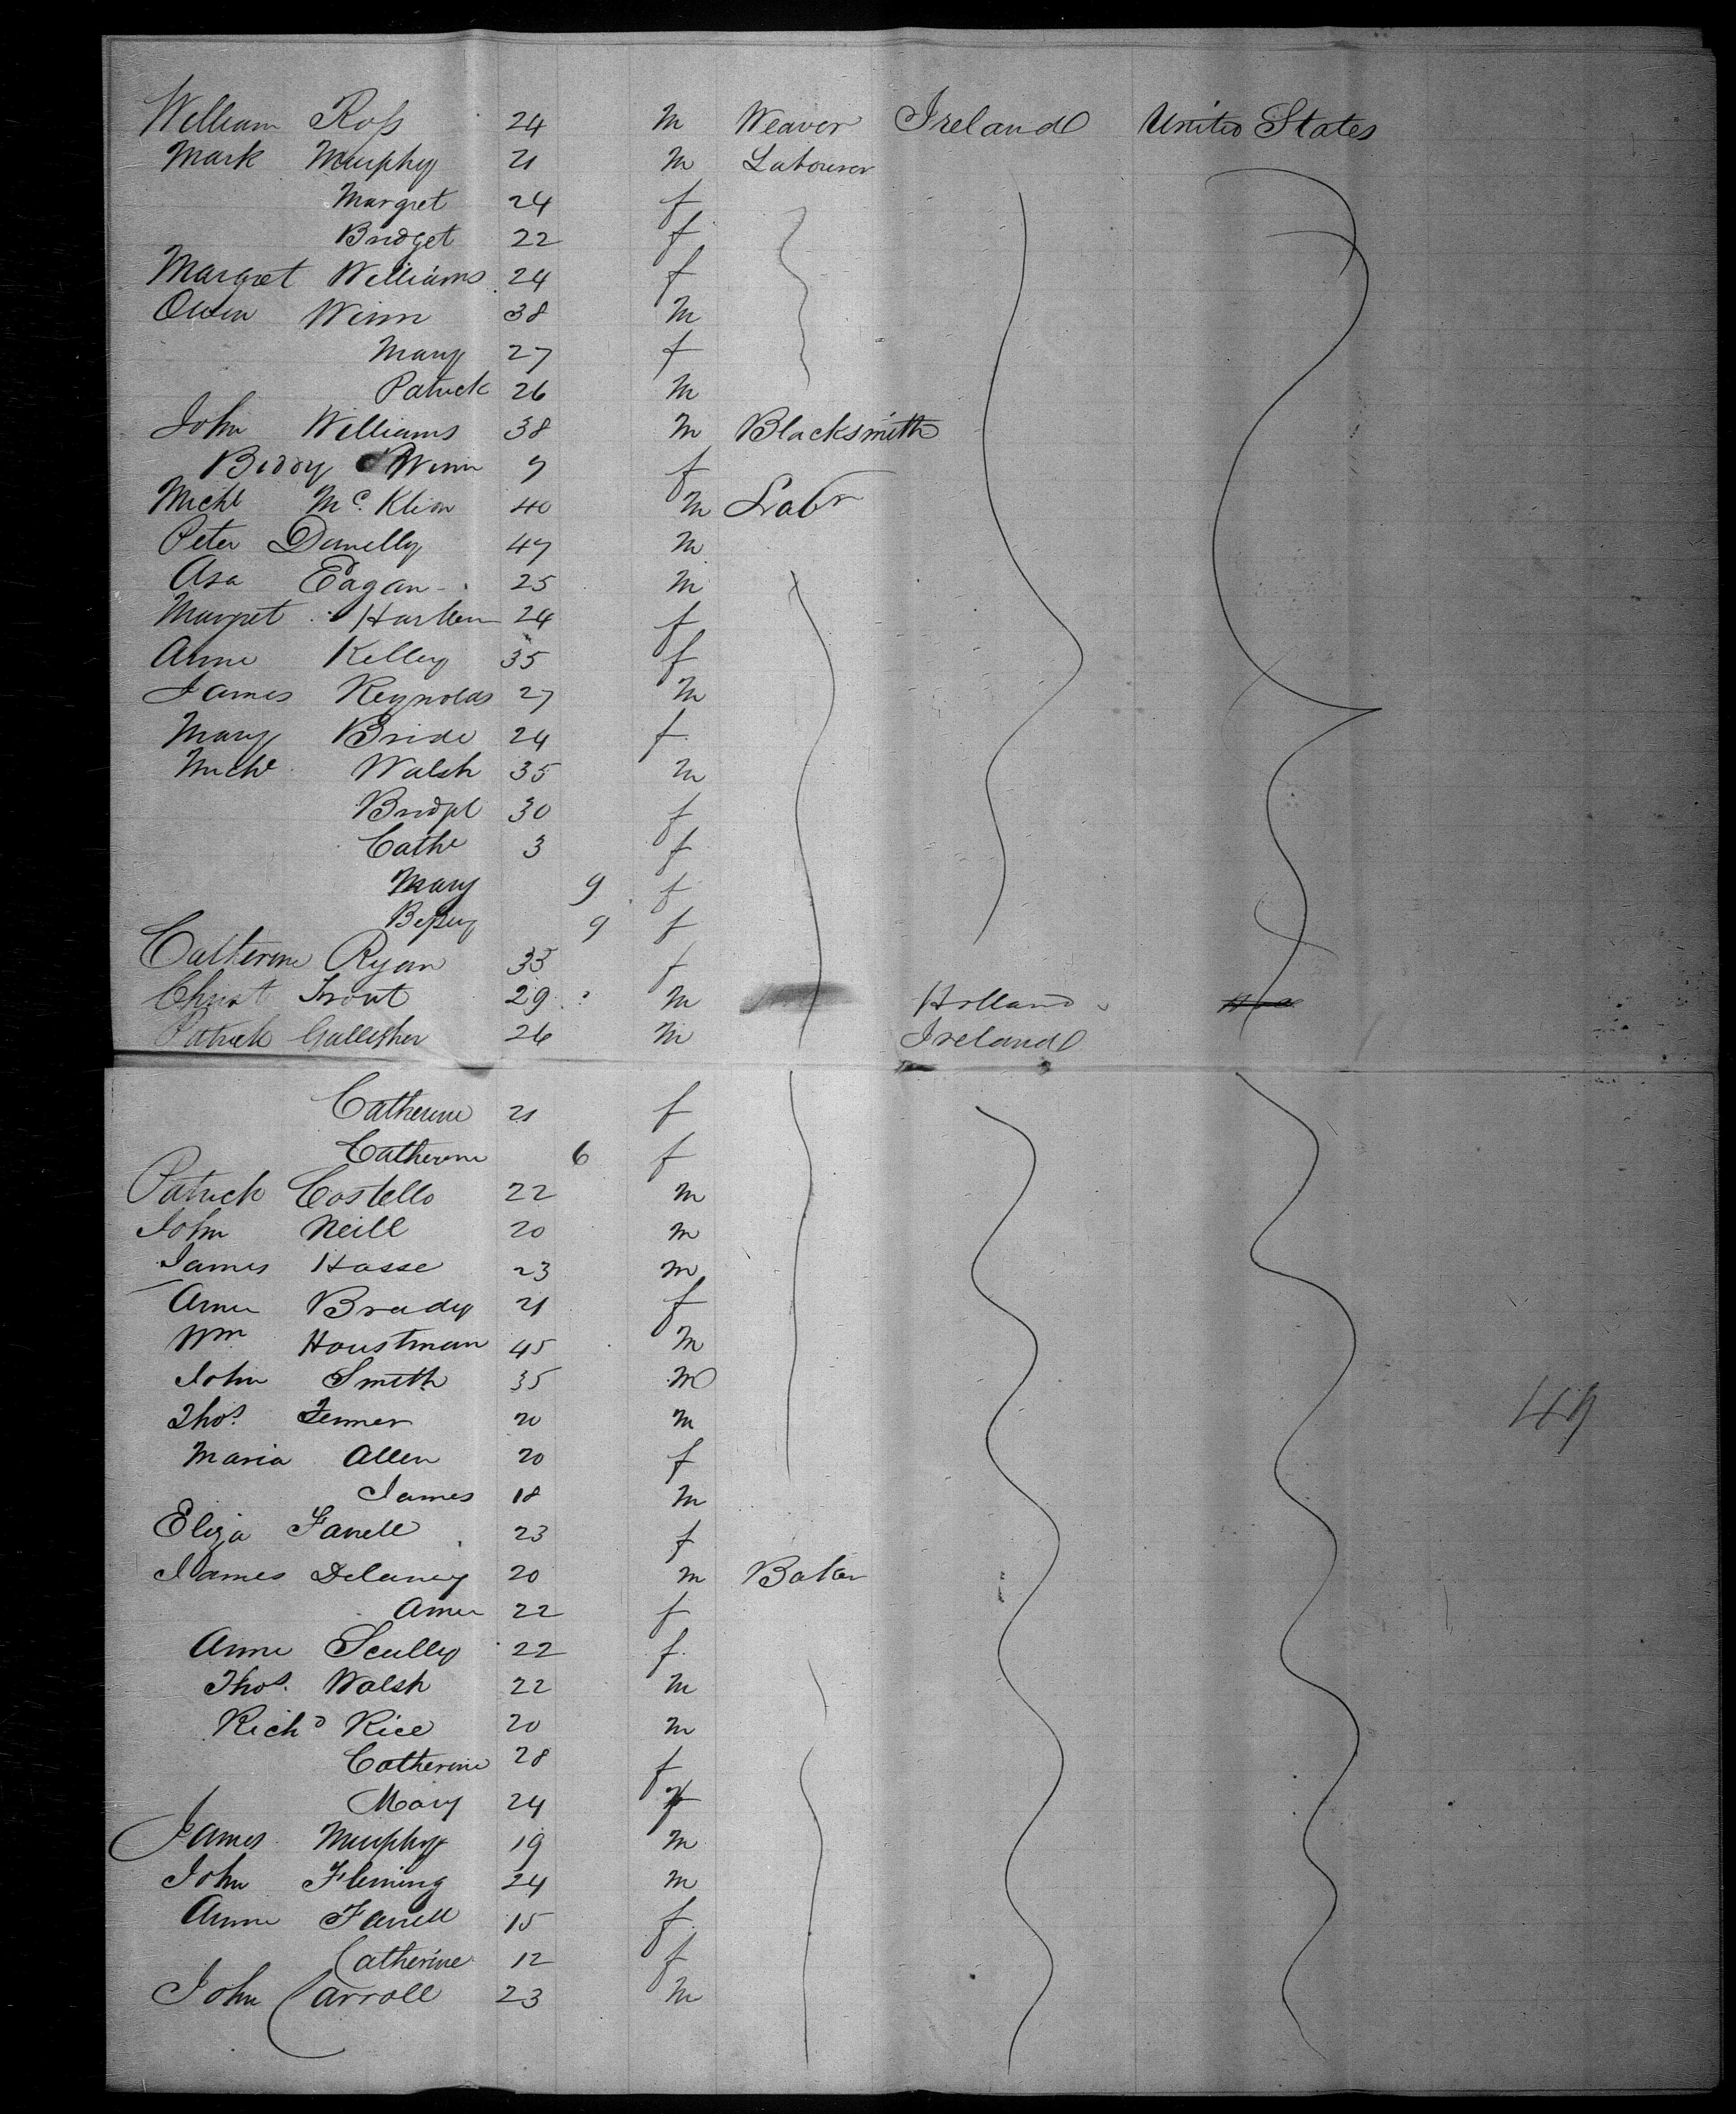 William Ross 24 M Weaver Ireland United States
Mark Murphy 21 M Labourer
Margret 24 f
Bridget 22 f
Margret Williams 24 f
Owen Winn 38 M
Mary 27 f
Patrick 26 M
John Williams 38 M Blacksmith
Biddy Winn 9 f
Michl McKlion 40 M Labr
Peter Donnelly 47 M
Asa Eagan 25 M
Margret 24 f
Anne Kelley 35 f
James Reynolds 27 M
Mary Bride 24 f
Michl Walsh 35 M
Bridget 30 f
Cathe 3 f
Mary 9 f
Bessy 9 f
Catherine Ryan 35 f
Christ Trout 29 M Holland
Patrick Gallegher 26 M Ireland
Catherine 21 f
Catherine 6 f
Patrick Costello 22 M
John Neill 20 M
James Hasse 23 M
Anne Brady 21 f
Wm Houstman 45 M
John Smith 35 M
Thos. Fenner 20 M
Maria Allen 20 f
James 18 M
Eliza Farrell 23 f
James Delaney 20 M Baker
Anne 22 f
Anne Scully 22 f
Thos. Walsh 22 M
Richd Rice 20 M
Catherine 28 f
Mary 24 f
James Murphy 19 M
John Fleming 24 M
Anne Farrell 15 f
Catherine 12 f
John Carroll 23 M